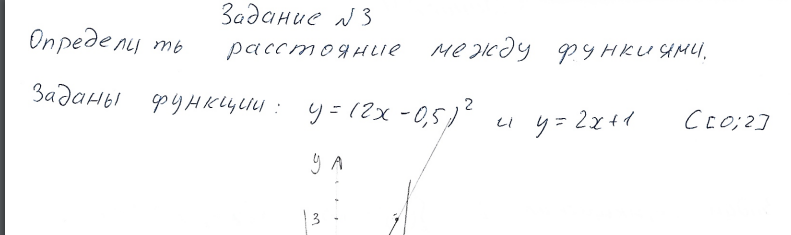 Задание №3
Определить расстояние между функиями.
Заданы функции: y = (2x - 0,5)² и y = 2x + 1 C[0;2]
y
13